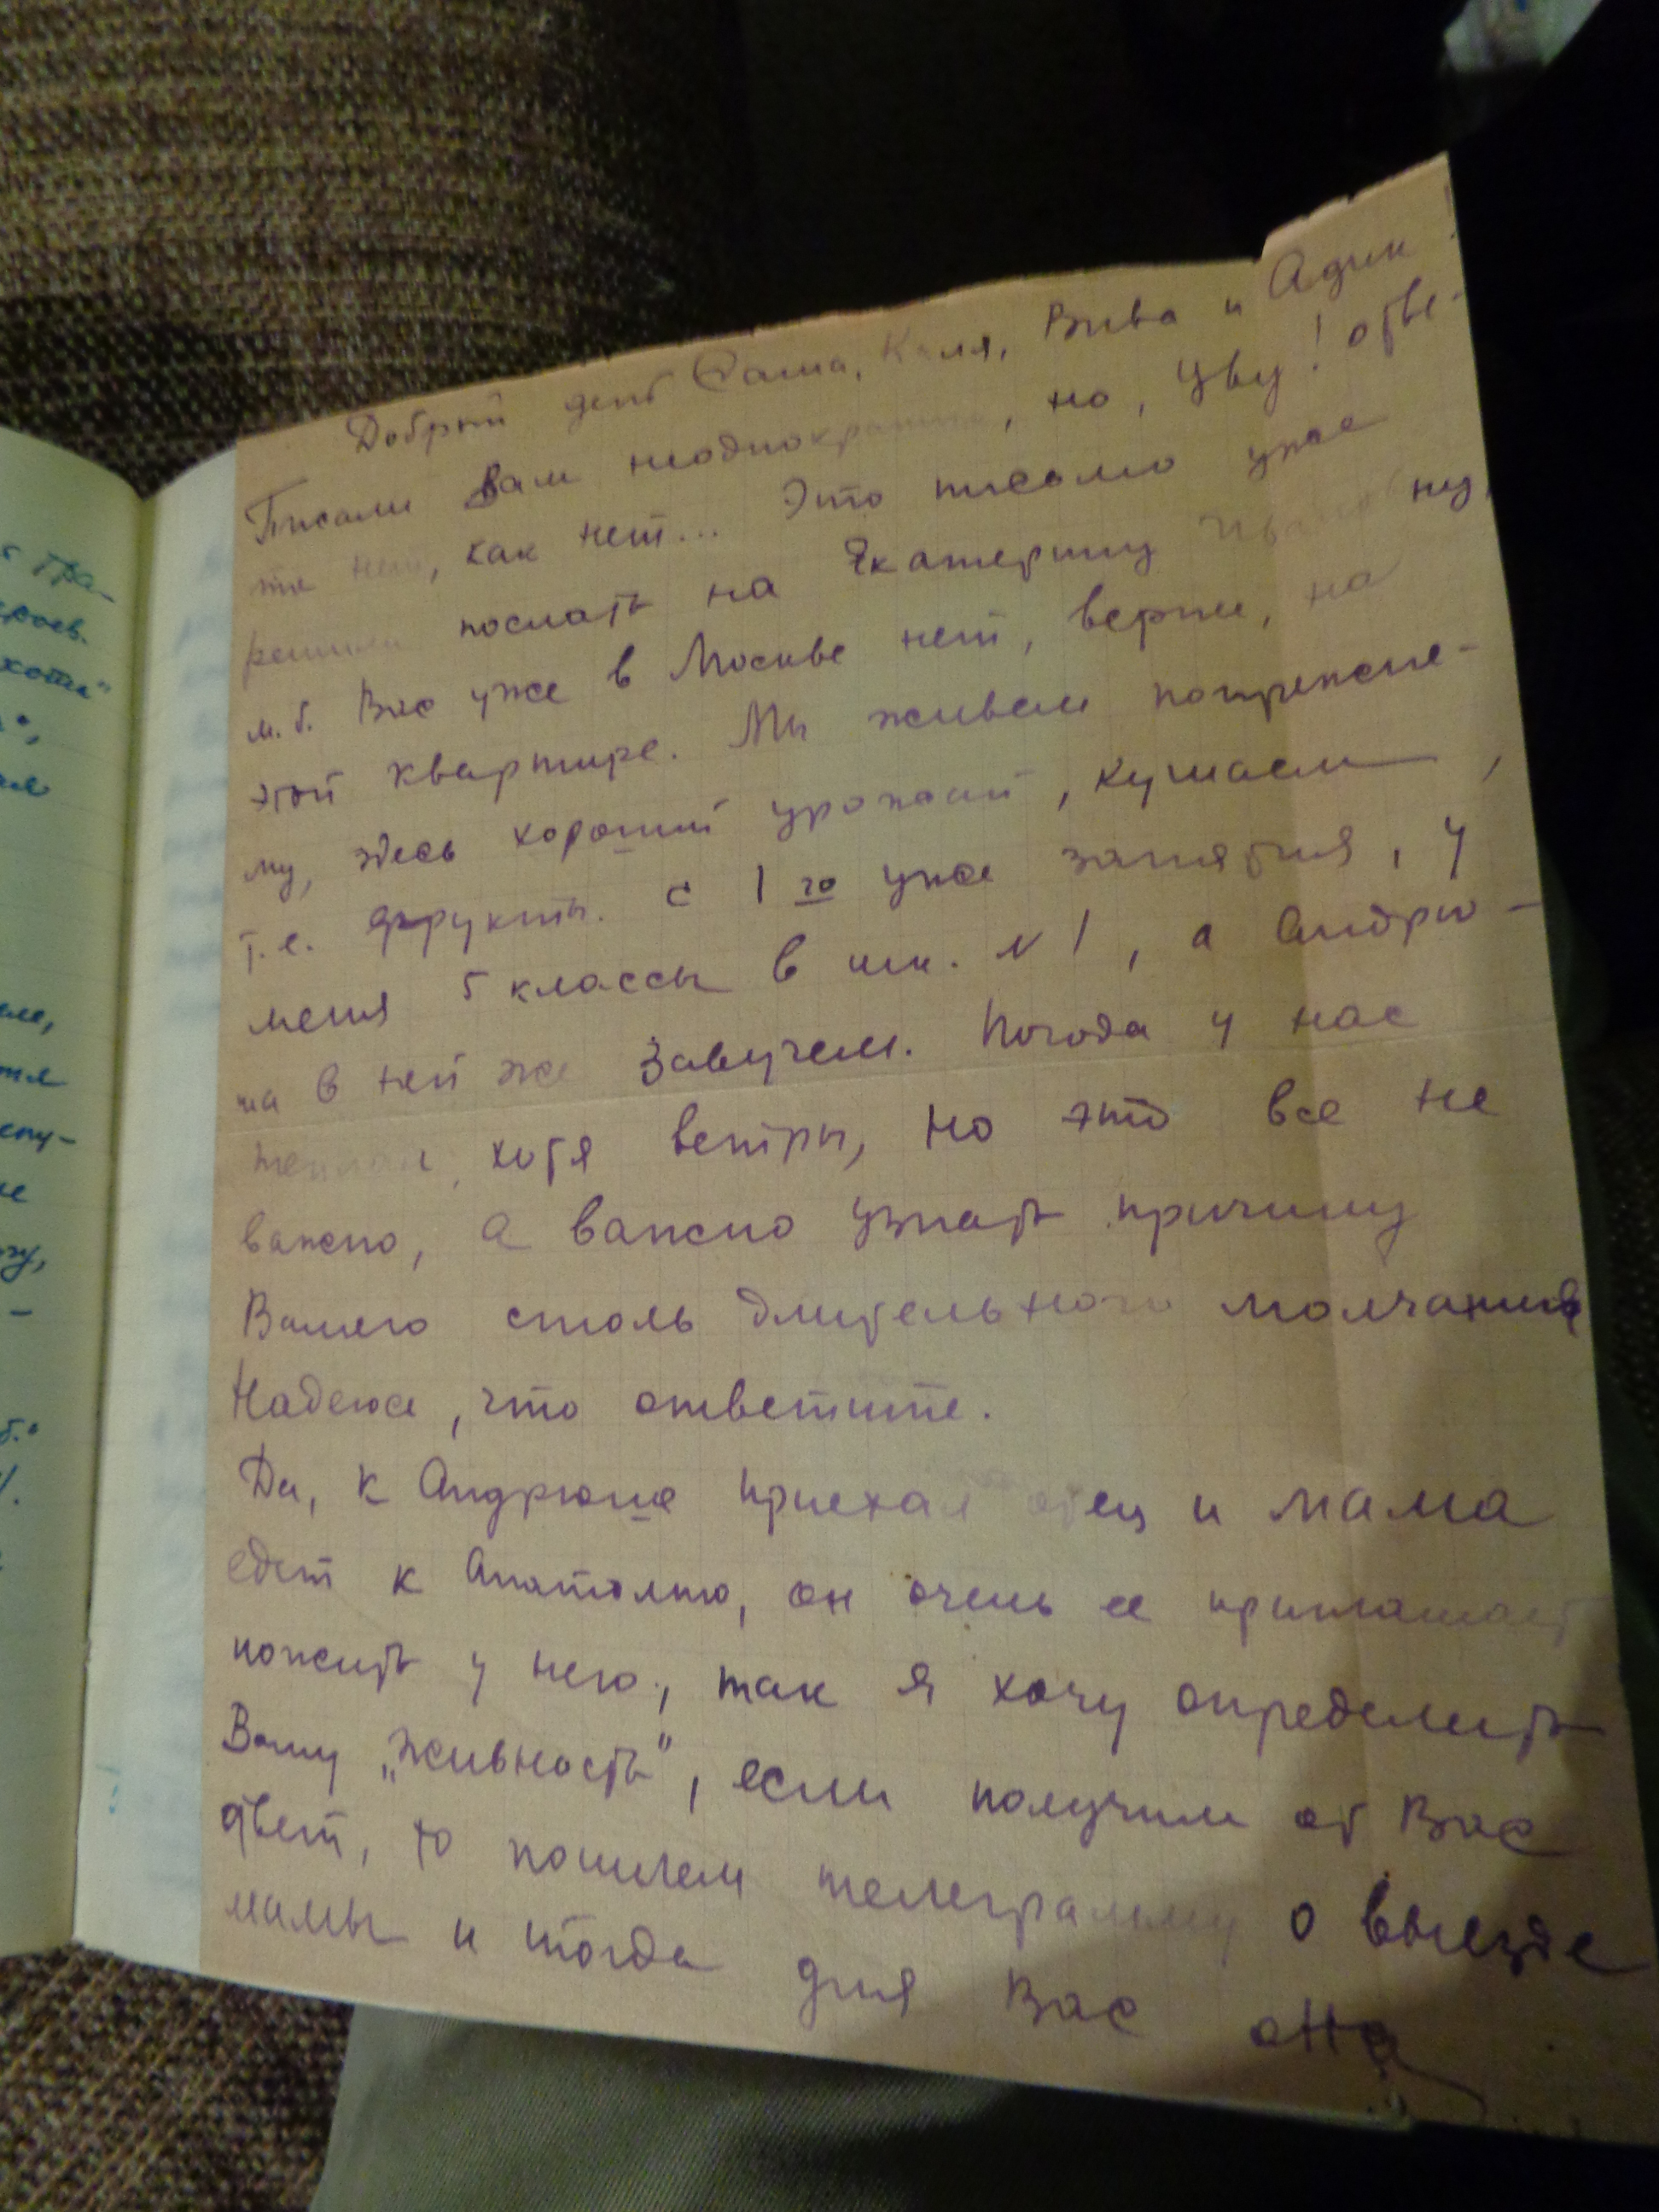 гра-
роев.
хоти"
Добрый день Саша, Каля, Вива и Адик
Писали Вам неоднократно, но, увы! отве-
та нет, как нет... Это письмо уже
решили послать на Екатерину Ивановну,
м.б. Вас уже в Москве нет, верней, на
этой квартире. Мы живем попрежне-
му, здесь хороший урожай, кушаем,
т.е. фрукты. С 1го уже занятия, у
меня 5 классы в шк. N 1, а Андрю-
ша в ней же Завучем. Погода у нас
теплая, хотя ветры, но это все не
важно, а важно узнать причину
Вашего столь длительного молчания
Надеюсь, что ответите.
Да, к Андрюше приехал отец и мама
едет к Анатолию, он очень ее приглашает
пожить у него, так я хочу определить
Вашу „живность", если получим от Вас
ответ, то пошлем телеграмму о выезде
мамы и тогда для Вас она